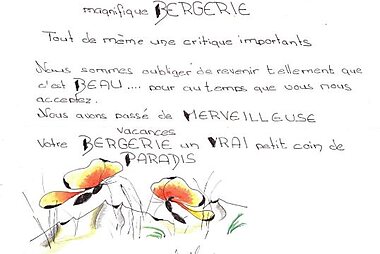 magnifique BERGERIE
Tout de même une critique importants
Nous sommes oubliger de revenir tellement que
c'est BEAU .... pour autemps que vous nous
acceptez.
Nous avons passé de MERVEILLEUSE
vacances
Votre BERGERIE un VRAI petit coin de
PARADIS